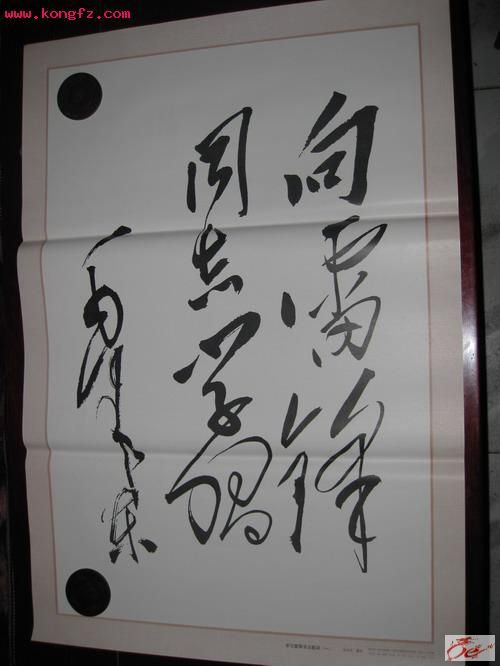 www.kongfz.com
向雷锋
同志学习
毛泽东